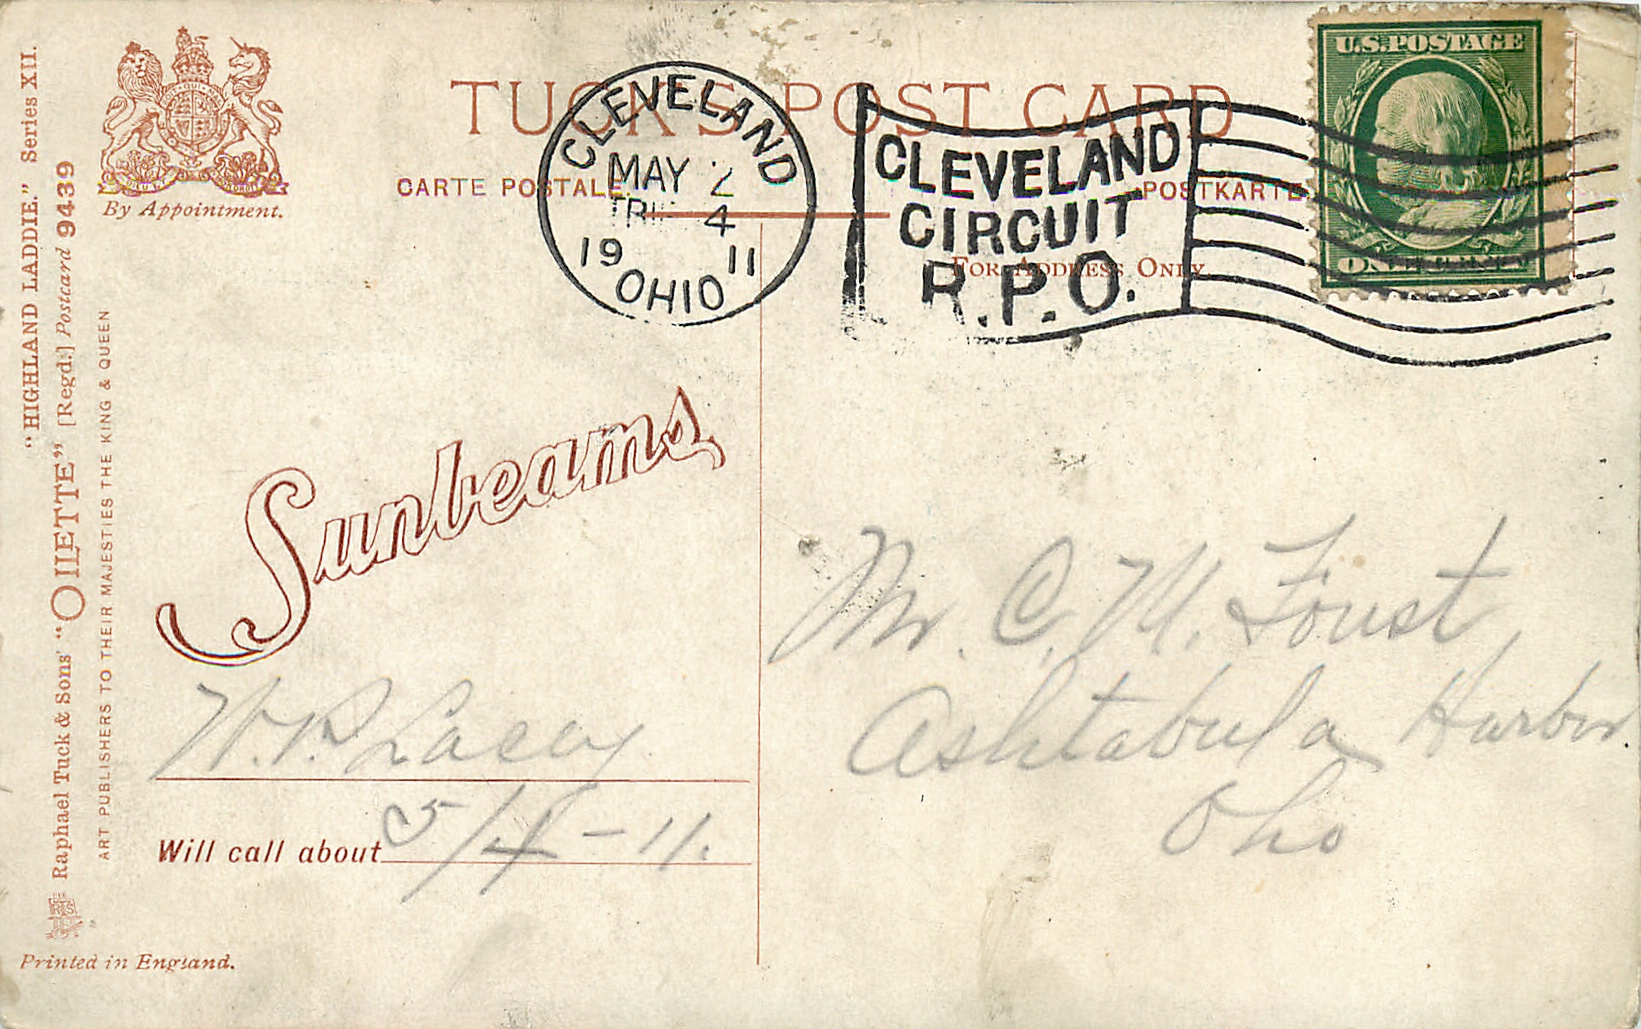 "HIGHLAND LADDIE." Series XII.
Raphael Tuck & Sons' "OILETTE" [Regd.] Postcard 9439
ART PUBLISHERS TO THEIR MAJESTIES THE KING & QUEEN
By Appointment.
TUCK'S POST CARD
CARTE POSTALE
POSTKARTE
FOR ADDRESS ONLY
CLEVELAND
MAY 2
TRIP 4
19 11
OHIO
CLEVELAND
CIRCUIT
R.P.O.
U.S. POSTAGE
Sunbeams
W.P. Lacey
Will call about 5/4-11.
Mr. C. M. Foust,
Ashtabula Harbor.
Ohio
Printed in England.